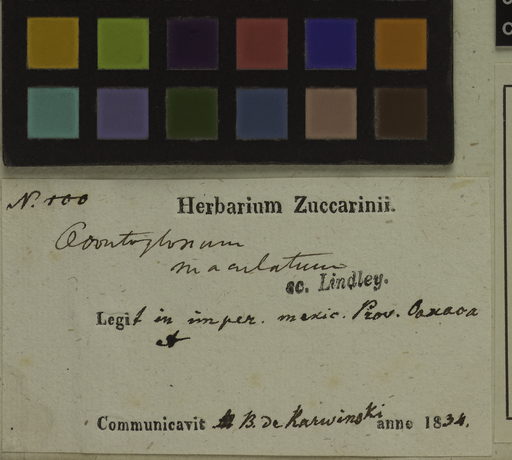 N. 100
Herbarium Zuccarinii.
Odontoglossum
maculatum
sc. Lindley.
Legit in imper. mexic. Prov. Oaxaca
et
Communicavit B. de Karwinski anno 1834.